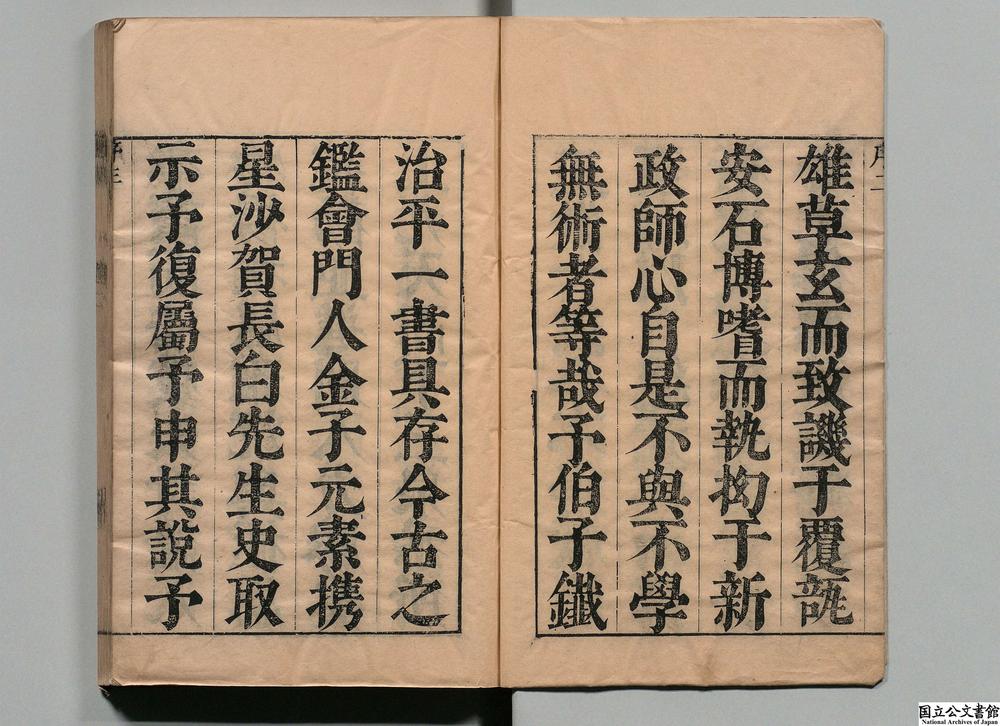 序二
雄草玄而致譏于覆瓿
安石博嗜而執拘于新
政師心自是不與不學
無術者等哉予伯子鐵
治平一書具存今古之
鑑會門人金子元素携
星沙賀長白先生史取
示予復屬予申其說予
序三
国立公文書館
National Archives of Japan